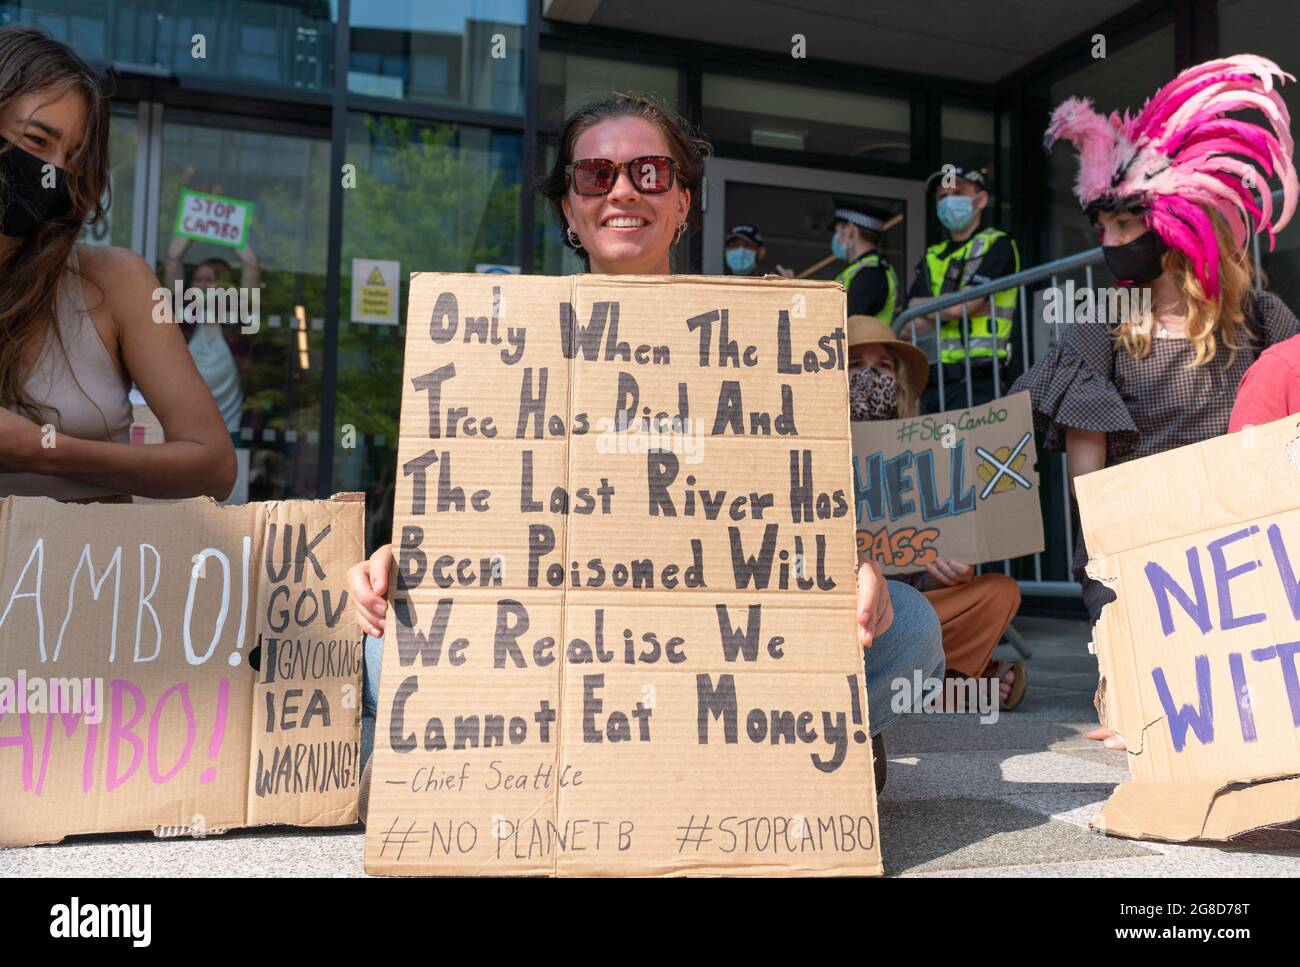 STOP
CAMBO
Only When The Last
Tree Has Died And
The Last River Has
Been Poisoned Will
We Realise We
Cannot Eat Money!
—Chief Seattle
#NO PLANET B #STOPCAMBO
AMBO!
AMBO!
UK
GOV
IGNORING
IEA
WARNING!
#StopCambo
HELL
PASS
NEW
WIT
alamy
Image ID: 2G8D78T
www.alamy.com